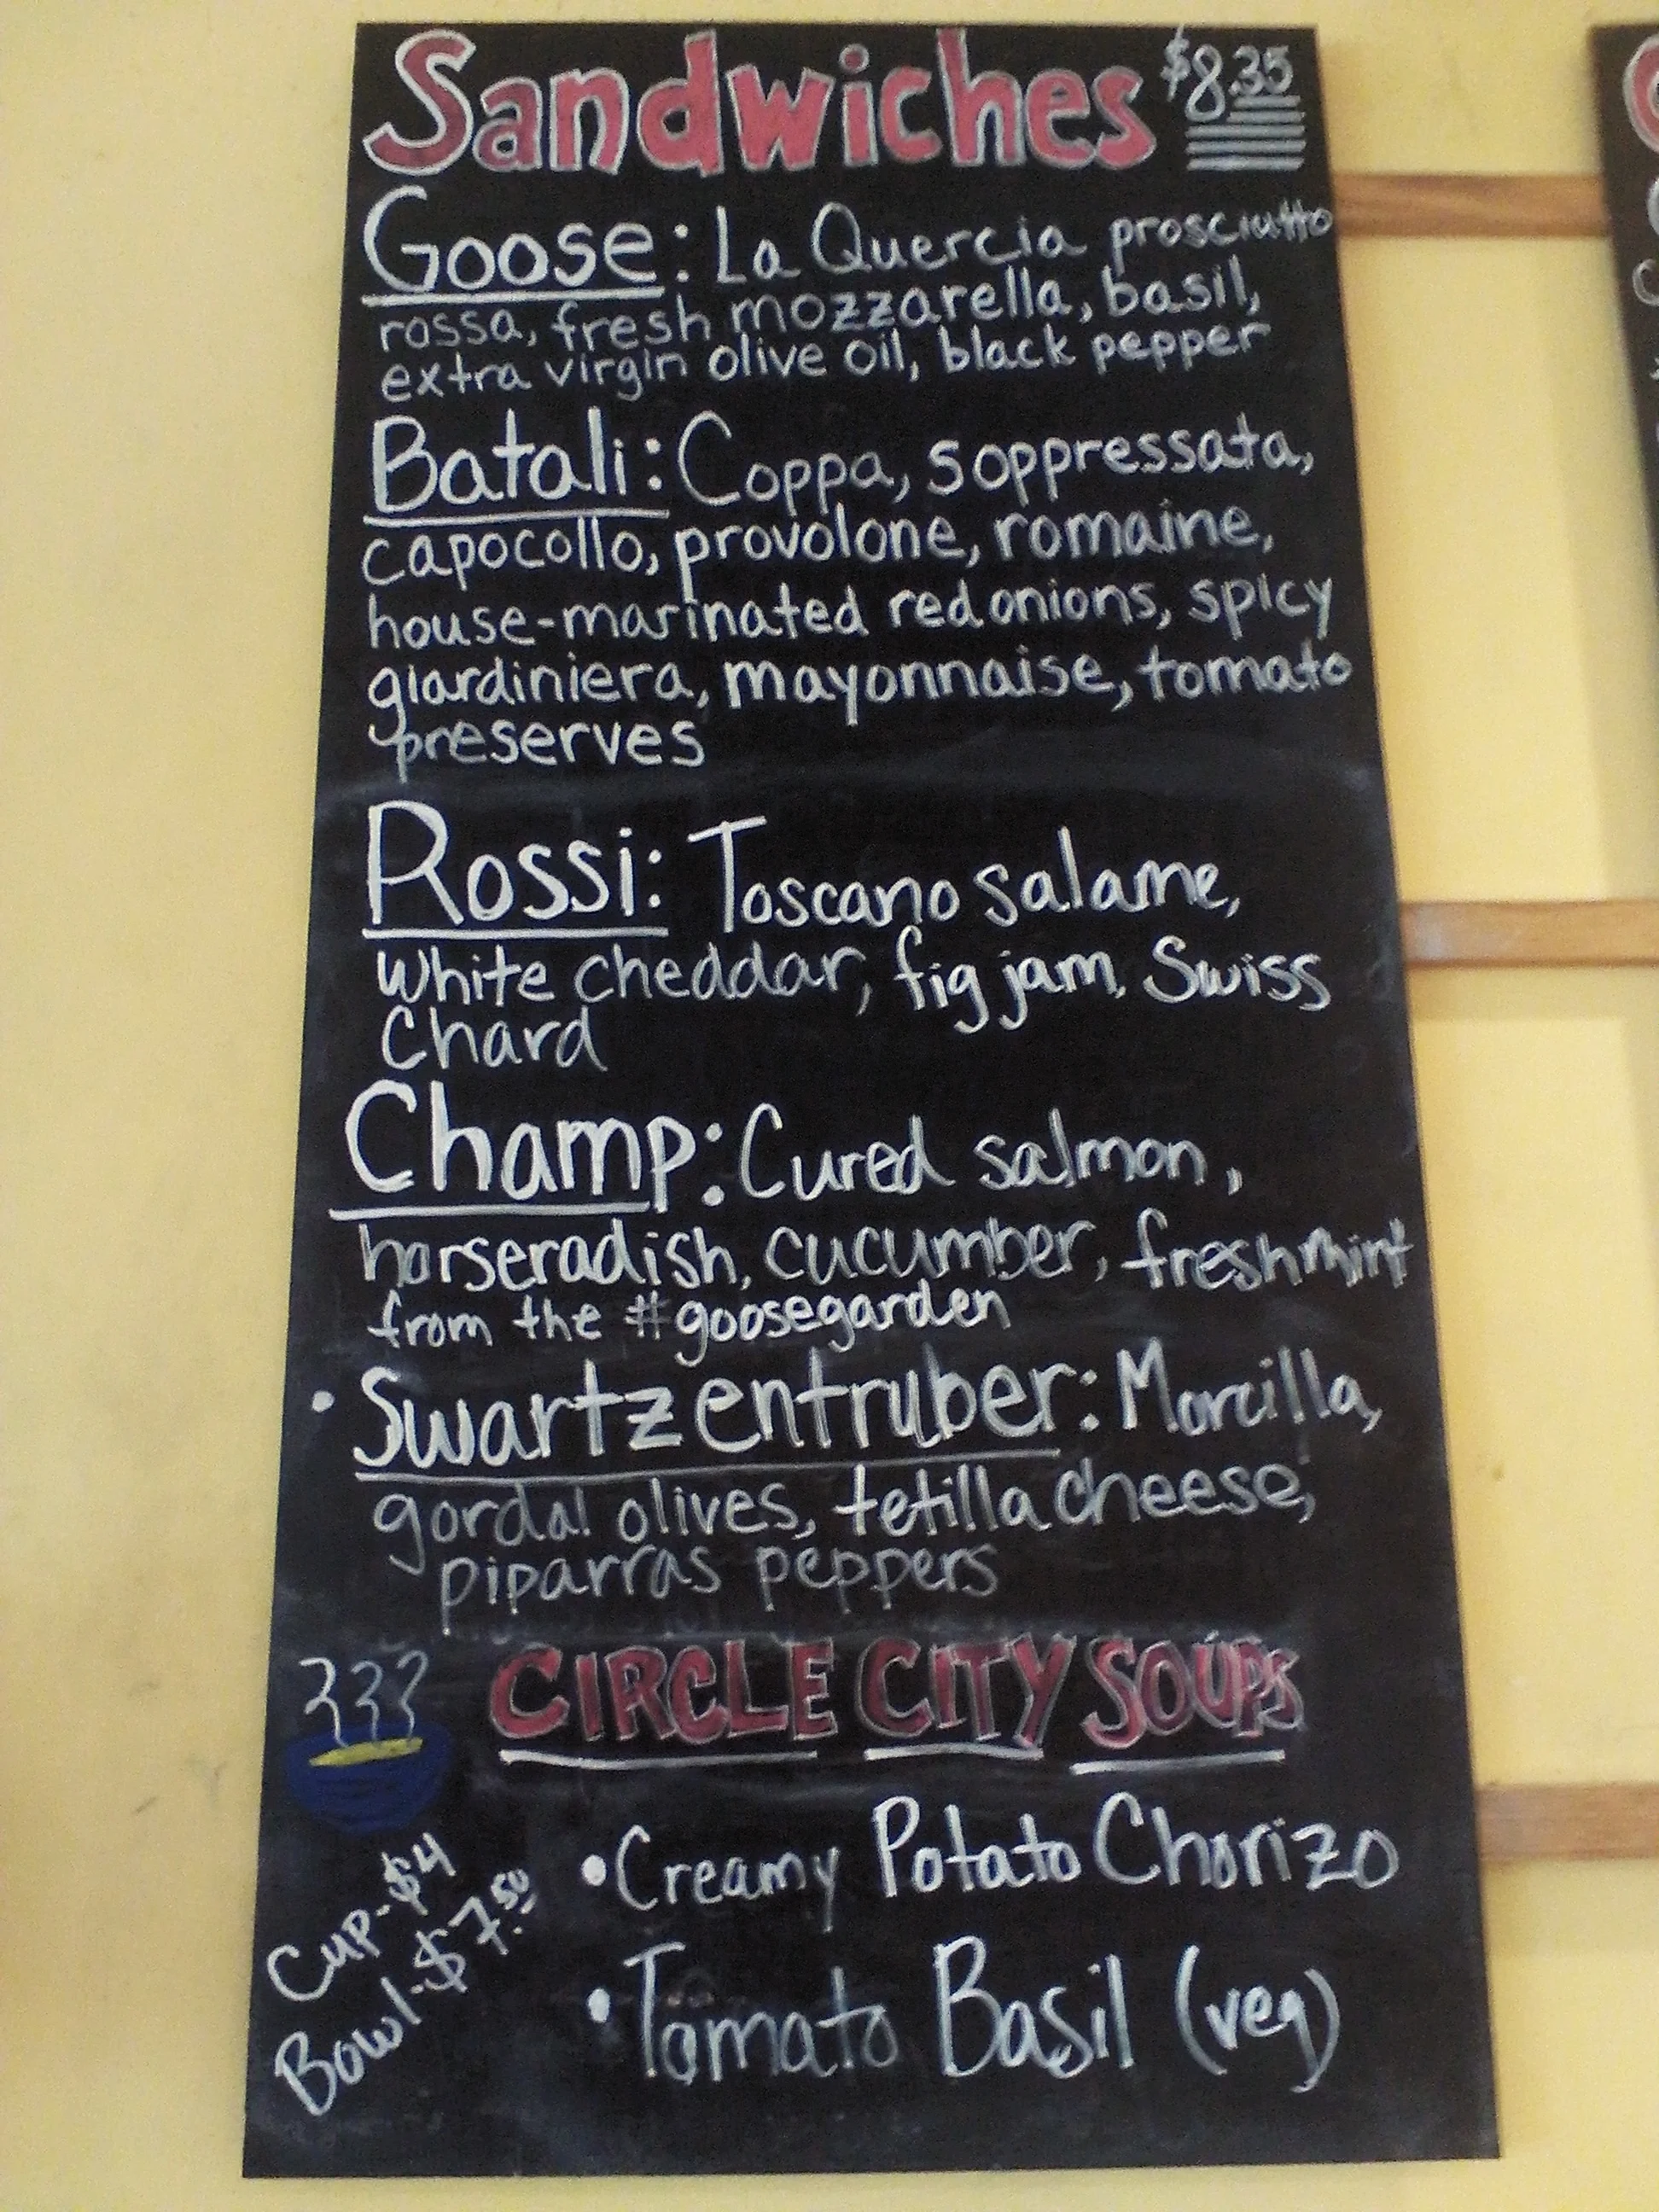 Sandwiches $8.35
Goose: La Quercia prosciutto
rossa, fresh mozzarella, basil,
extra virgin olive oil, black pepper
Batali: Coppa, soppressata,
capocollo, provolone, romaine,
house-marinated red onions, spicy
giardiniera, mayonnaise, tomato
preserves
Rossi: Toscano salame,
white cheddar, fig jam, Swiss
Chard
Champ: Cured salmon,
horseradish, cucumber, fresh mint
from the #goosegarden
• Swartzentruber: Morcilla,
gordal olives, tetilla cheese,
piparras peppers
CIRCLE CITY SOUPS
Cup-$4
Bowl-$7.50
• Creamy Potato Chorizo
• Tomato Basil (veg)